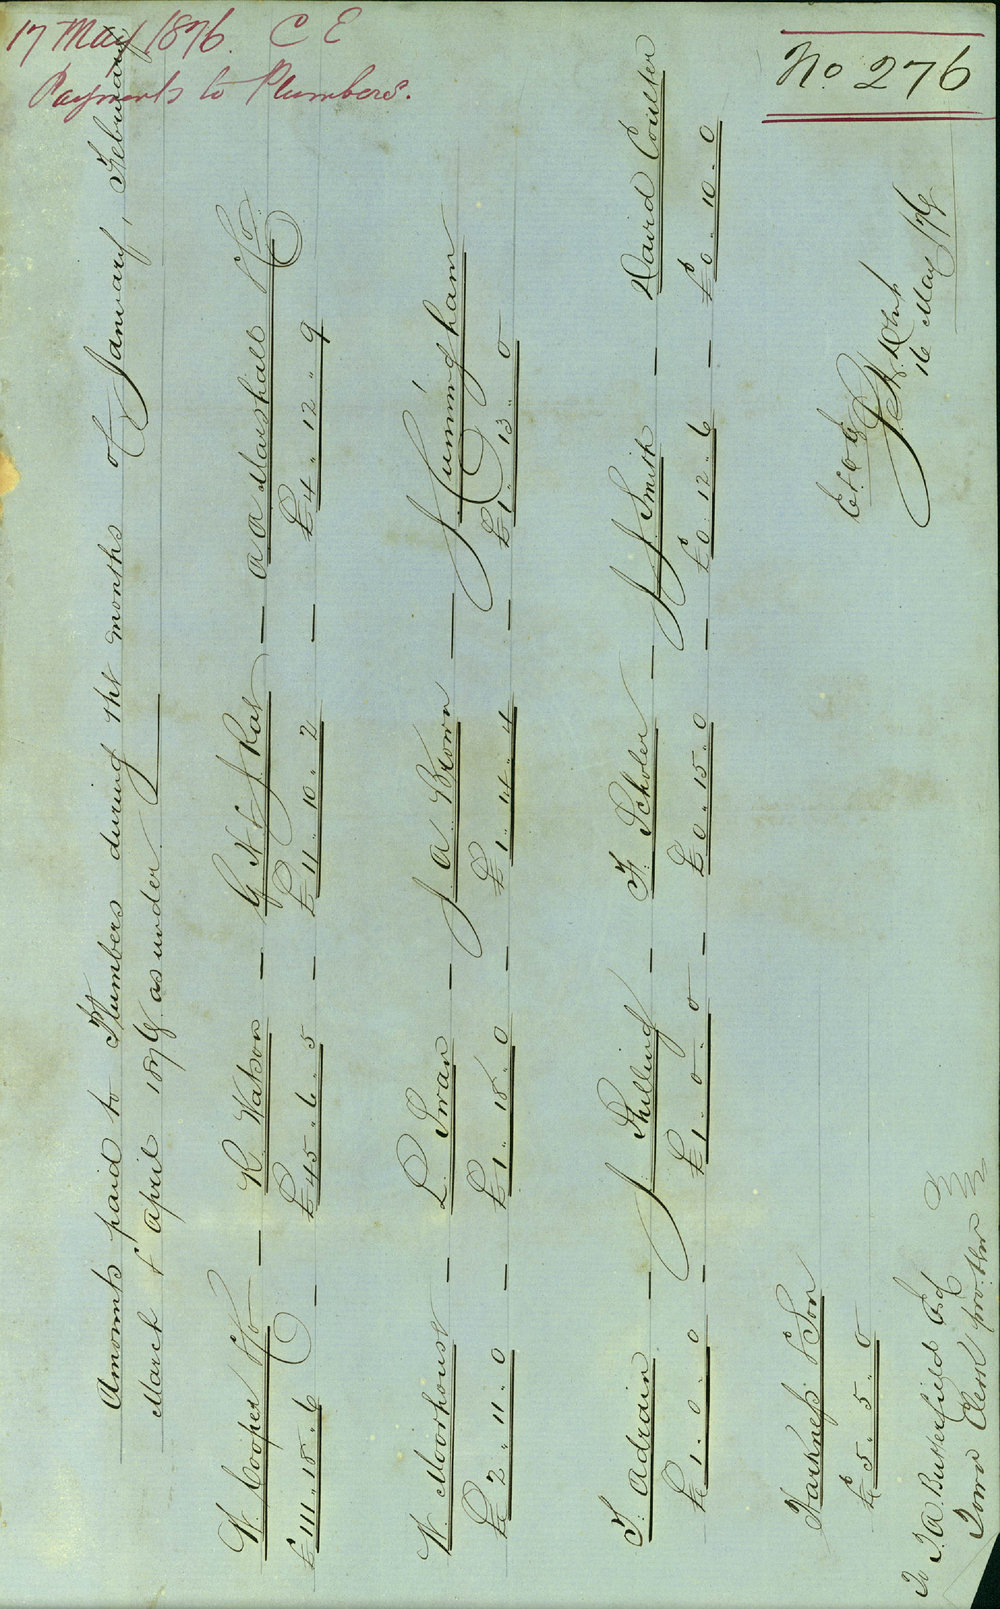 17 May 1876. C E
Payments to Plumbers.
No. 276
Amounts paid to Plumbers during the months of January, Febuary
March & April 1876 as under
W. Cooper & Co — R. Watson — G H & J Rae — A A Marshall & Co.
£111.18.6 — £45.6.5 — £11.10.2 — £4.12.9
W. Moorhouse — L. Swan — J A. Brown — J Cunningham
£2.11.0 — £1.18.0 — £1.14.4 — £1.13.0
T. Adrain — J Shilling — F. Scholer — J. Smith — David Coulter
£1.0.0 — £1.0.0 — £0.15.0 — £0.12.6 — £0.10.0
Harkness & Son
£5.5.0
16 May /76
To T. A. Butterfield Esq
Town Clerk pro. tem